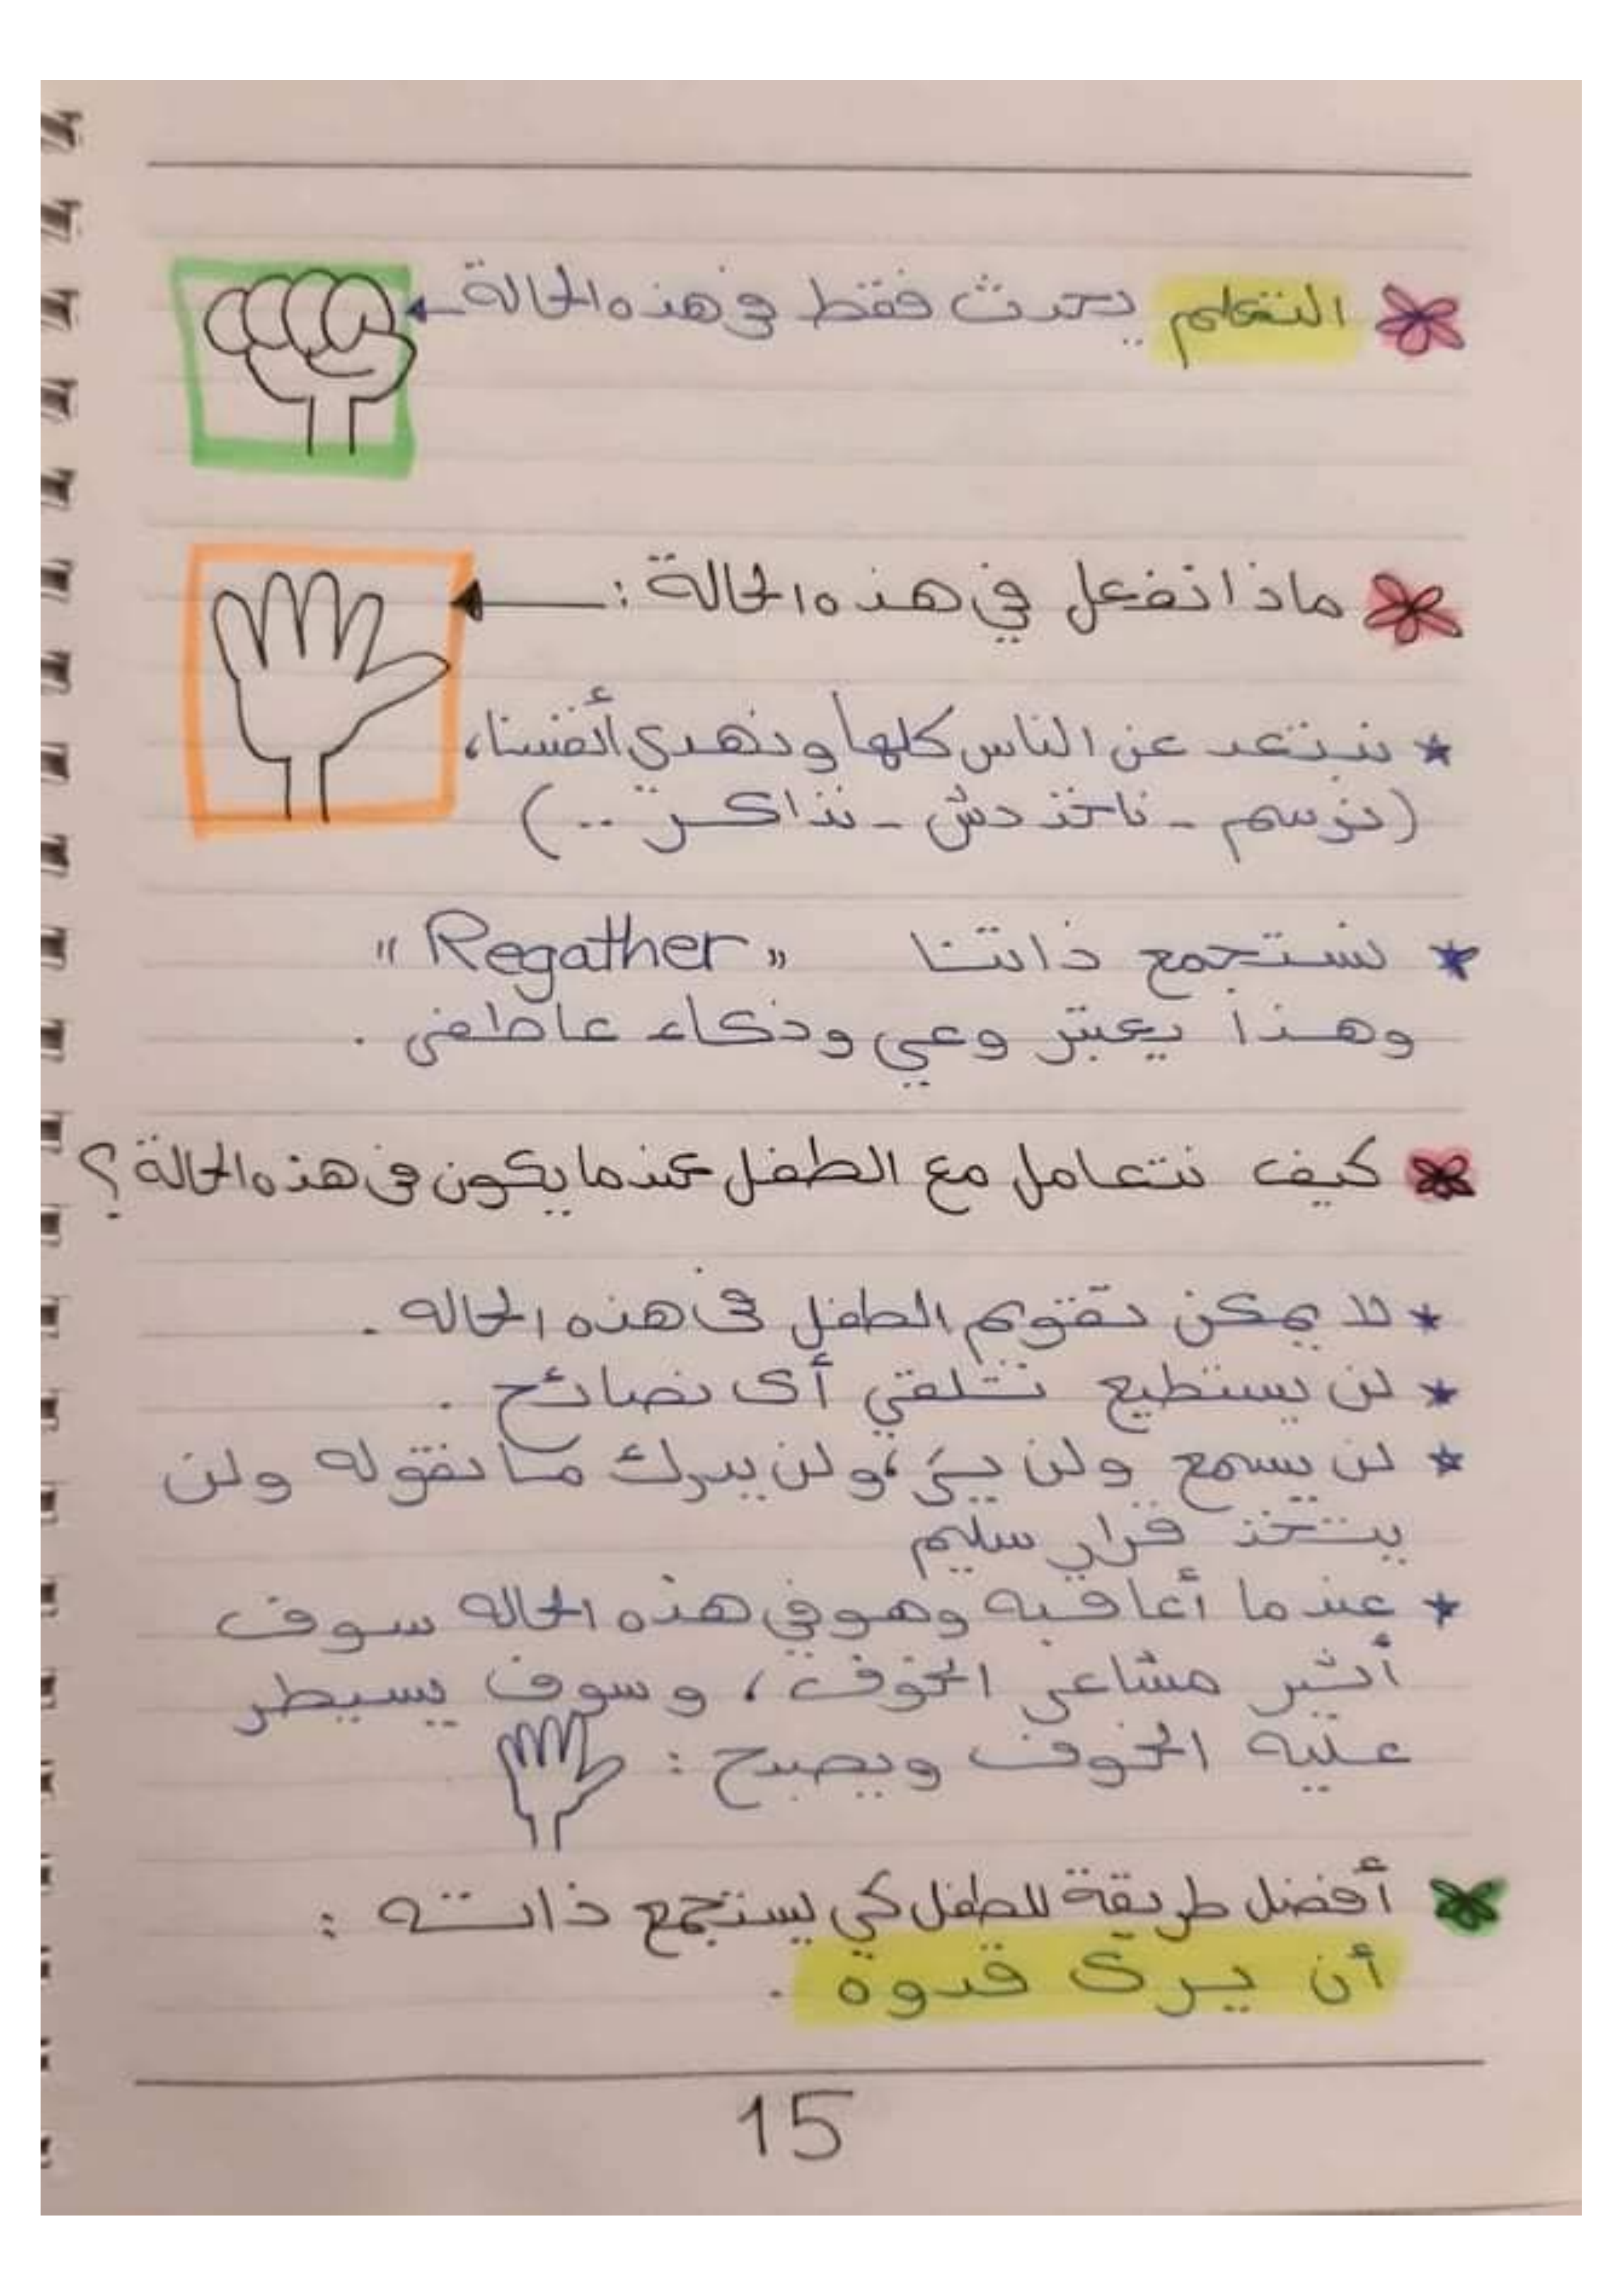 التعلم يحدث فقط في هذه الحالة
ماذا نفعل في هذه الحالة :
نبتعد عن الناس كلها ونهدي أنفسنا،
(نرسم - ناخذ دش - نذاكر ..)
نستجمع ذاتنا "Regather"
وهذا يعتبر وعي وذكاء عاطفى .
كيف نتعامل مع الطفل عندما يكون فى هذه الحالة ؟
لا يمكن تقويم الطفل فى هذه الحاله .
لن يستطيع تلقي أى نصائح .
لن يسمع ولن يرى، ولن يدرك ما نقوله ولن
يتخذ قرار سليم
عندما أعاقبه وهو في هذه الحاله سوف
أثير مشاعر الخوف، وسوف يسيطر
عليه الخوف ويصبح :
أفضل طريقة للطفل كي يستجمع ذاته :
أن يرى قدوة .
15